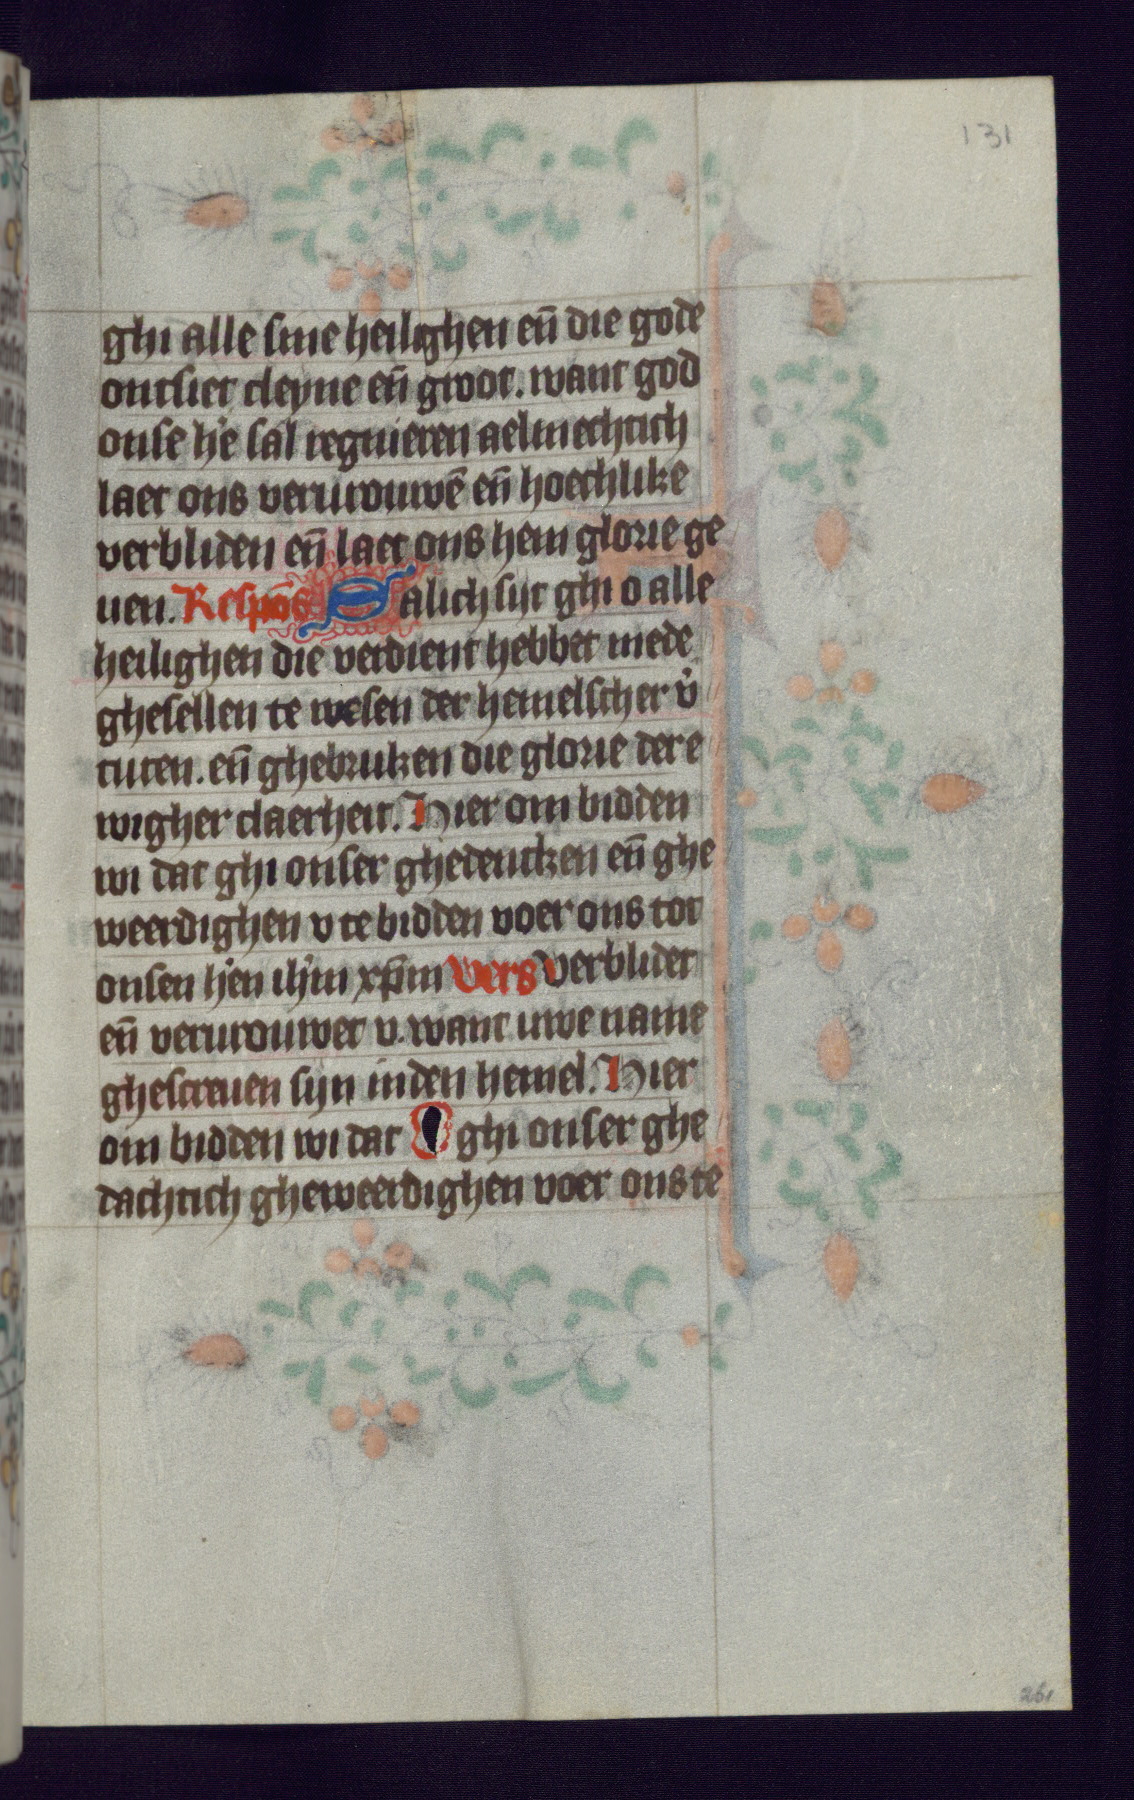 131
ghi alle sine heilighen en̄ die gode
ontsiet cleyne en̄ groot. want god
onse h'e sal regnieren aelmechtich
laet ons verurouwē en̄ hoechlike
verbliden en̄ laet ons hem glorie ge
uen. Respōs Salich sijt ghi o alle
heilighen die verdient hebbet mede
ghesellen te wesen der hemelscher v'
tuten. en̄ ghebruken die glorie der e
wigher claerheit. Hier om bidden
wi dat ghi onser ghedencken en̄ ghe
weerdighen v te bidden voer ons tot
onsen h'en ih'm xp̄m Vers Verblidet
en̄ verurouwet v. want uwe name
ghescreuen sijn inden hemel. Hier
om bidden wi dat ghi onser ghe
dachtich gheweerdighen voer ons te
261